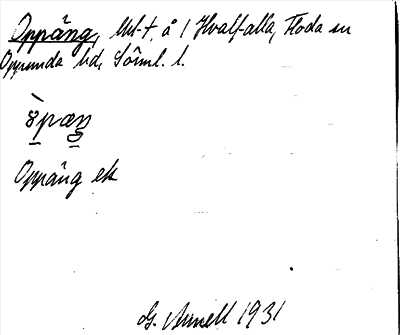 Oppäng, utl-t. å / Hvalfalla, Floda sn
Oppunda hd, Söml. l.
Oppäng ek
G. Arnell 1931